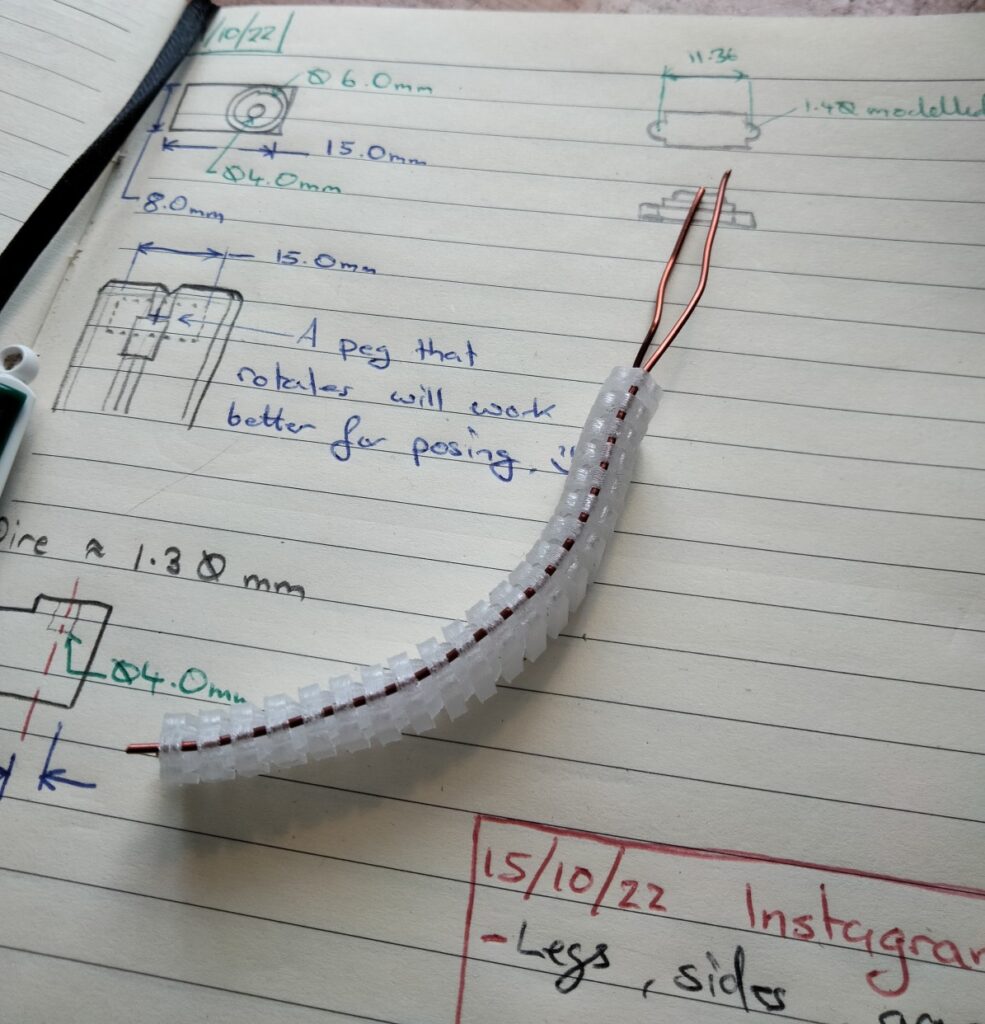 /10/22
Ø 6.0mm
15.0mm
Ø4.0mm
8.0mm
11.36
1.4Ø modelled
15.0mm
A peg that
rotates will work
better for posing.
Wire ≈ 1.3 Ø mm
Ø4.0mm
15/10/22 Instagram
- Legs, sides